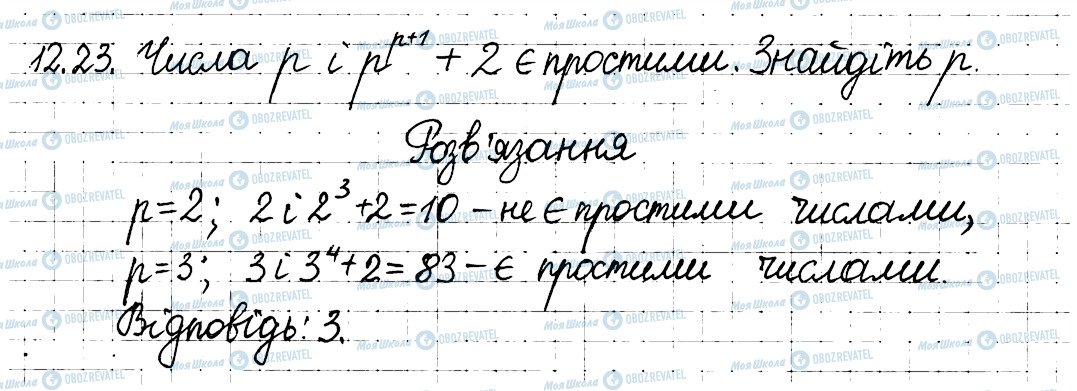 12.23. Числа p і p^{p+1} + 2 є простими. Знайдіть p.
Розв'язання
p=2; 2 і 2^3+2=10 – не є простими числами,
p=3; 3 і 3^4+2=83 – є простими числами.
Відповідь: 3.